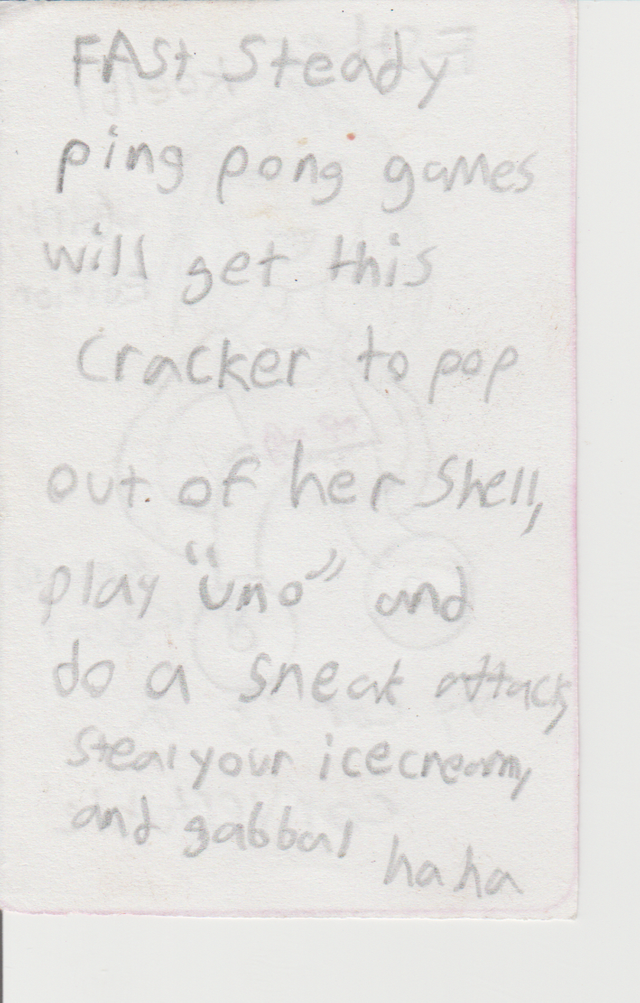 FASt Steady
ping pong games
will get this
Cracker to pop
out of her Shell,
play "Uno" and
do a sneak attack,
Steal your icecream,
and gabbal
haha